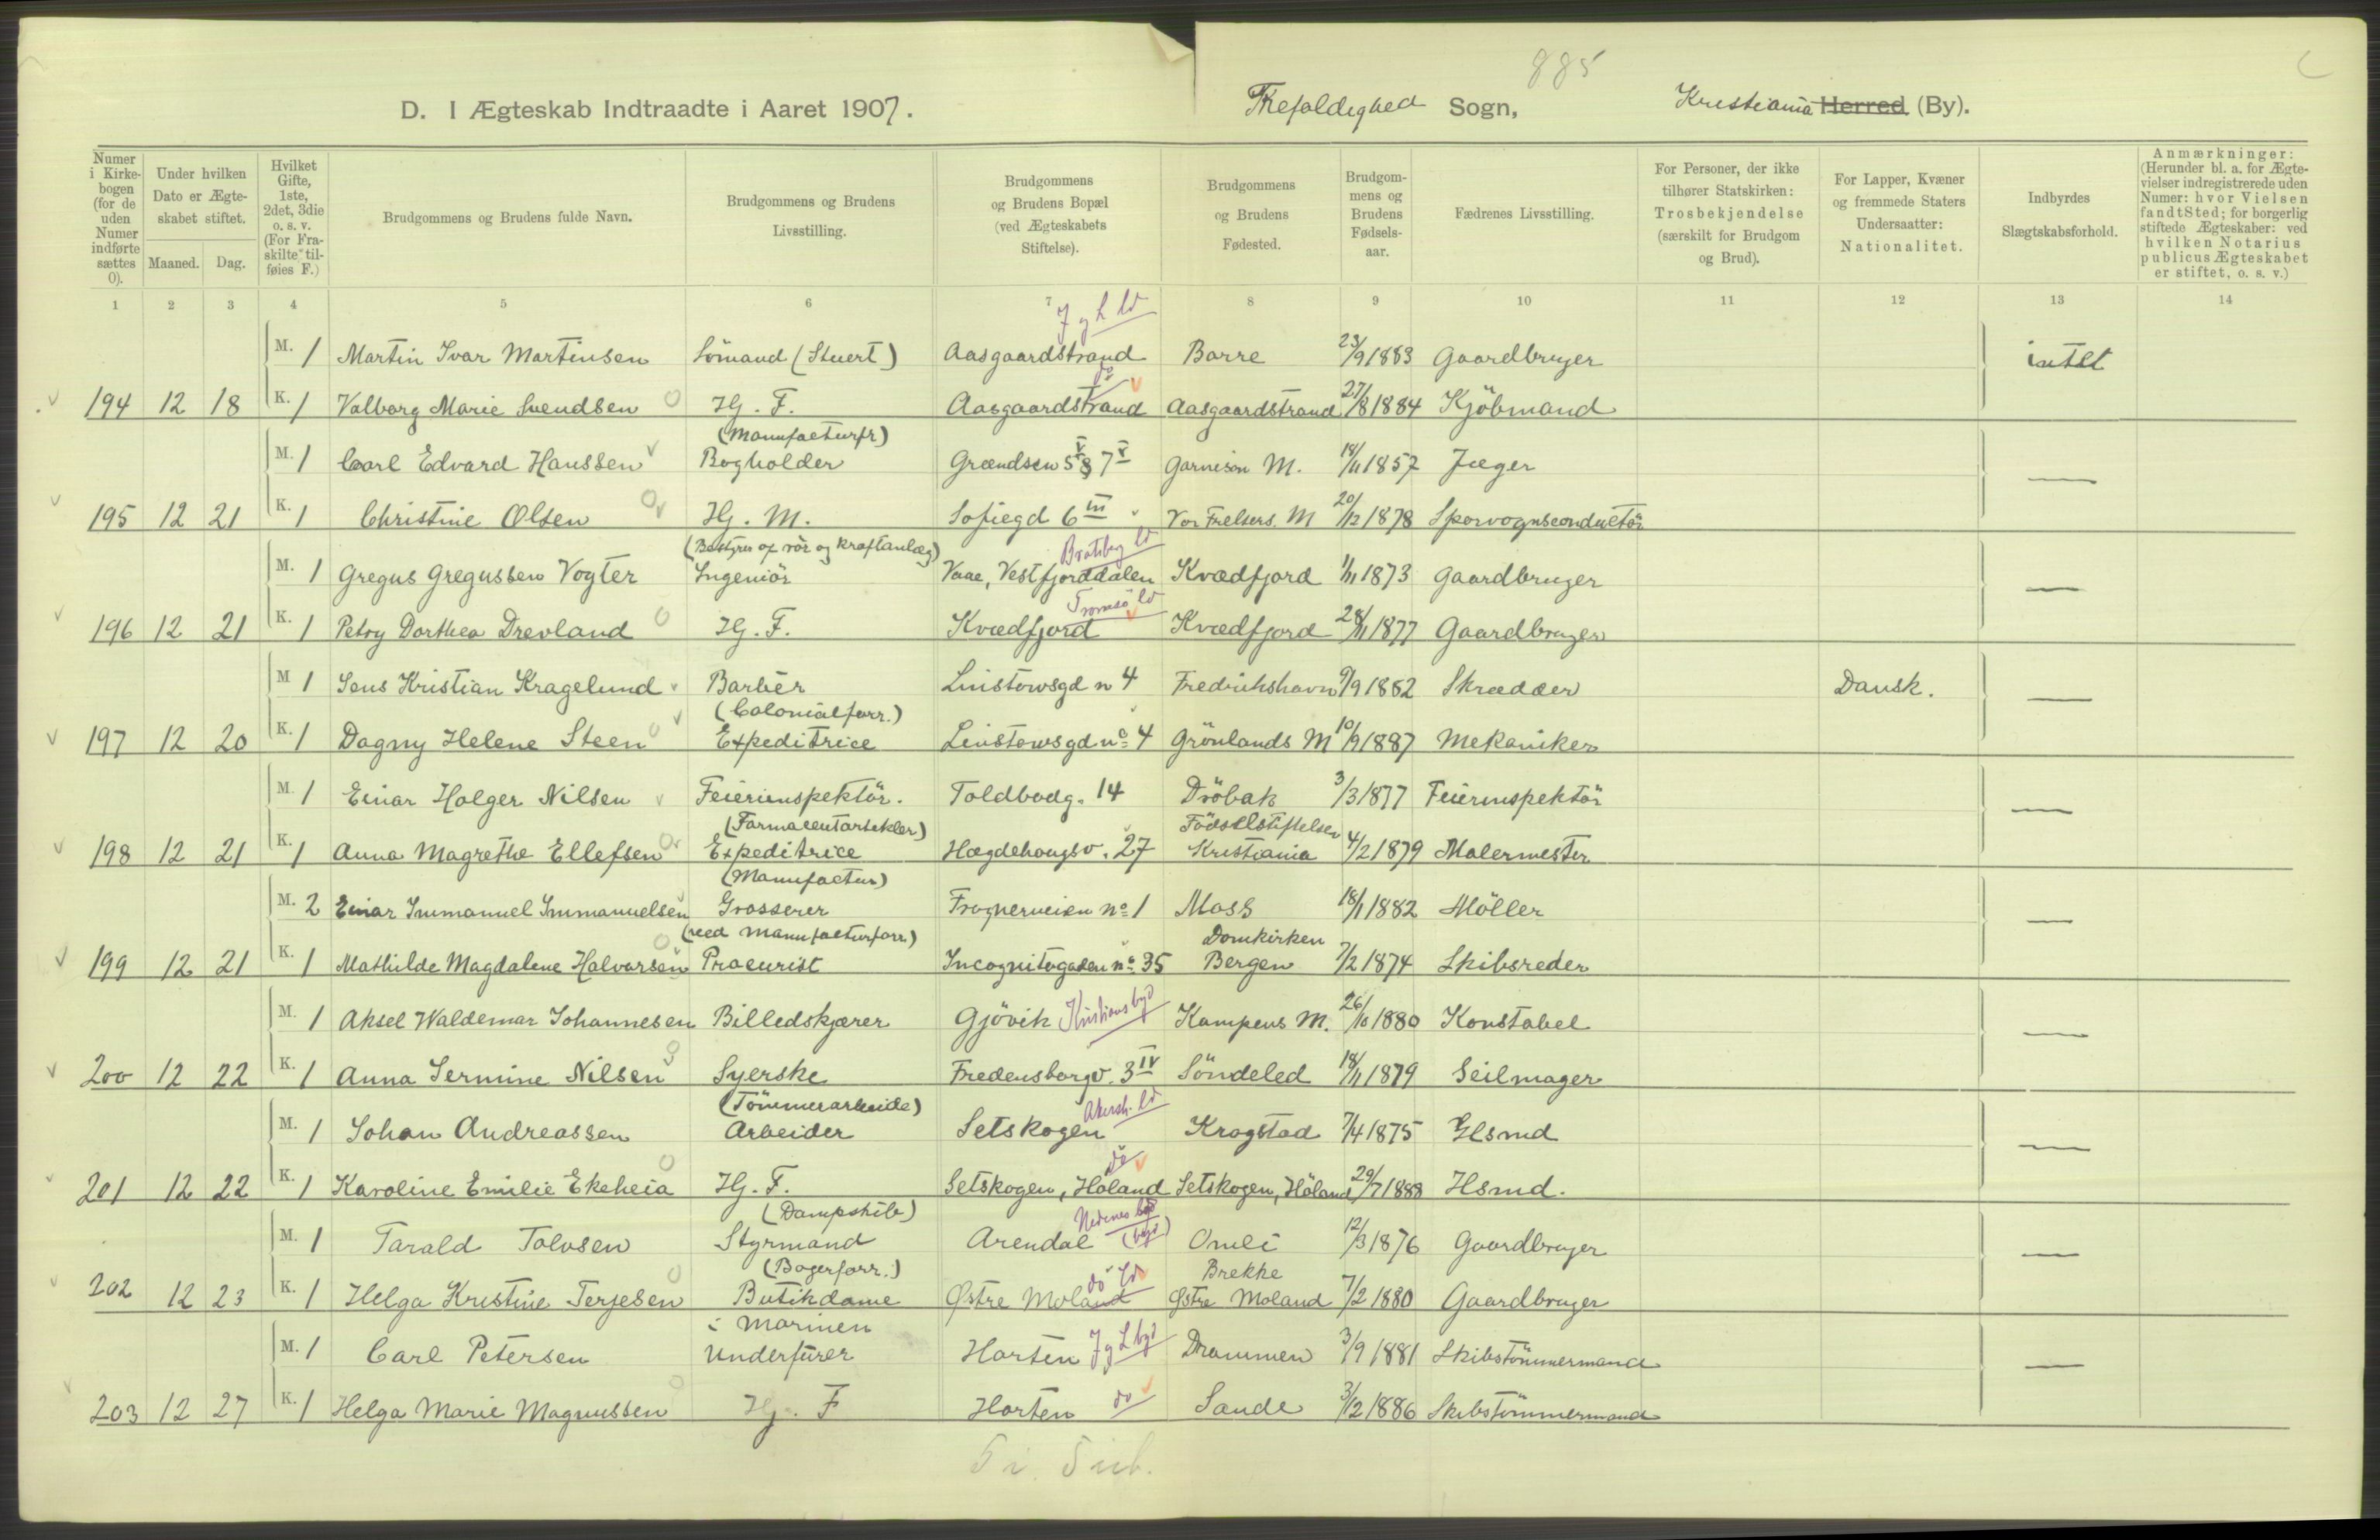 885
D. I Ægteskab Indtraadte i Aaret 1907. Trefoldighed Sogn, Kristiania Herred (By).
Numer i Kirkebogen (for de uden Numer indførte sættes 0).
Under hvilken Dato er Ægteskabet stiftet.
Maaned. Dag.
Hvilket Gifte, 1ste, 2det, 3die o. s. v. (For Fraskilte tilføies F.)
Brudgommens og Brudens fulde Navn.
Brudgommens og Brudens Livsstilling.
Brudgommens og Brudens Bopæl (ved Ægteskabets Stiftelse).
Brudgommens og Brudens Fødested.
Brudgommens og Brudens Fødselsaar.
Fædrenes Livsstilling.
For Personer, der ikke tilhører Statskirken: Trosbekjendelse (særskilt for Brudgom og Brud).
For Lapper, Kvæner og fremmede Staters Undersaatter: Nationalitet.
Indbyrdes Slægtskabsforhold.
Anmærkninger: (Herunder bl. a. for Ægtevielser indregistrerede uden Numer: hvor Vielsen fandt Sted; for borgerlig stiftede Ægteskaber: ved hvilken Notarius publicus Ægteskabet er stiftet, o. s. v.)
1 2 3 4 5 6 7 8 9 10 11 12 13 14
J g L ld
M. 1 Martin Ivar Martinsen Sömand (Stuert) Aasgaardstrand Borre 23/9 1883 Gaardbruger intet
do
194 12 18 K. 1 Valborg Marie Svendsen Hj. F. Aasgaardstrand Aasgaardstrand 27/8 1884 Kjöbmand
(Manufacturfr)
M. 1 Carl Edvard Hanssen Bogholder Grændsen 5 & 7 V Garnison M. 18/11 1857 Jæger —
195 12 21 K. 1 Christine Olsen Hj. M. Sofiegd 6 III Vor Frelsers. M 20/12 1878 Sporvognsconductör
(Bestyrer af rör og kraftanlæg) Bratsberg ld
M. 1 Gregus Gregussen Vogter Ingeniör Vaae, Vestfjorddalen Kvædfjord 1/11 1873 Gaardbruger —
Tromsö ld
196 12 21 K. 1 Petry Dorthea Drevland Hj. F. Kvædfjord Kvædfjord 28/11 1877 Gaardbruger
M 1 Jens Kristian Kragelund Barbér Linstowsgd n 4 Fredrikshavn 9/9 1882 Skrædder Dansk. —
(Colonialforr.)
197 12 20 K. 1 Dagny Helene Steen Expeditrice Linstowsgd no 4 Grönlands M 10/9 1887 Mekaniker
M. 1 Einar Holger Nilsen Feierinspektör. Toldbodg. 14 Dröbak 3/3 1877 Feierinspektör —
(Farmaceutartikler) Födselsstiftelsen
198 12 21 K. 1 Anna Magrethe Ellefsen Expeditrice Hægdehaugsv. 27 Kristiania 4/2 1879 Malermester
(Manufactur)
M. 2 Einar Immanuel Immanuelsen Grosserer Frognerveien no 1 Moss 18/1 1882 Möller —
(ved Manufacturforr.) Domkirken
199 12 21 K. 1 Mathilde Magdalene Halvorsen Procurist Incognitogaden no 35 Bergen 7/2 1874 Skibsreder
M. 1 Aksel Waldemar Johannesen Billedskjærer Gjövik Kristians byd Kampens M. 26/10 1880 Konstabel —
200 12 22 K. 1 Anna Jermine Nilsen Syerske Fredensborgv. 3 IV Söndeled 18/11 1879 Seilmager
(Tömmerarbeide) Akersh. ld
M. 1 Johan Andreassen Arbeider Setskogen Krogstad 7/4 1875 Hsmd —
do
201 12 22 K. 1 Karoline Emilie Ekeheia Hj. F. Setskogen, Höland Setskogen, Höland 29/7 1888 Hsmd.
(Dampskib) Nedenes byd
M. 1 Tarald Tolvsen Styrmand Arendal (byd) Omli 12/3 1876 Gaardbruger —
(Bagerforr.) do ld Brekke
202 12 23 K. 1 Helga Kristine Terjesen Butikdame Østre Moland Østre Moland 7/2 1880 Gaardbruger
i Marinen
M. 1 Carl Petersen Underfürer Horten J g L byd Drammen 3/9 1881 Skibstömmermand —
203 12 27 K. 1 Helga Marie Magnussen Hj. F Horten do Sande 3/12 1886 Skibstömmermand